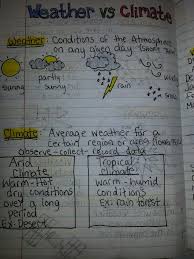 Weather vs Climate
Weather: Conditions of the Atmosphere
on any given day. (Short Time)
sunny
partly
sunny
rain
snow
Climate: Average weather for a
certain region or area
observe-collect-record data
Arid
Climate
Warm-Hot
dry conditions
over a long
period
Ex: Desert
Tropical
climate
warm-humid
conditions
Ex: rain forest